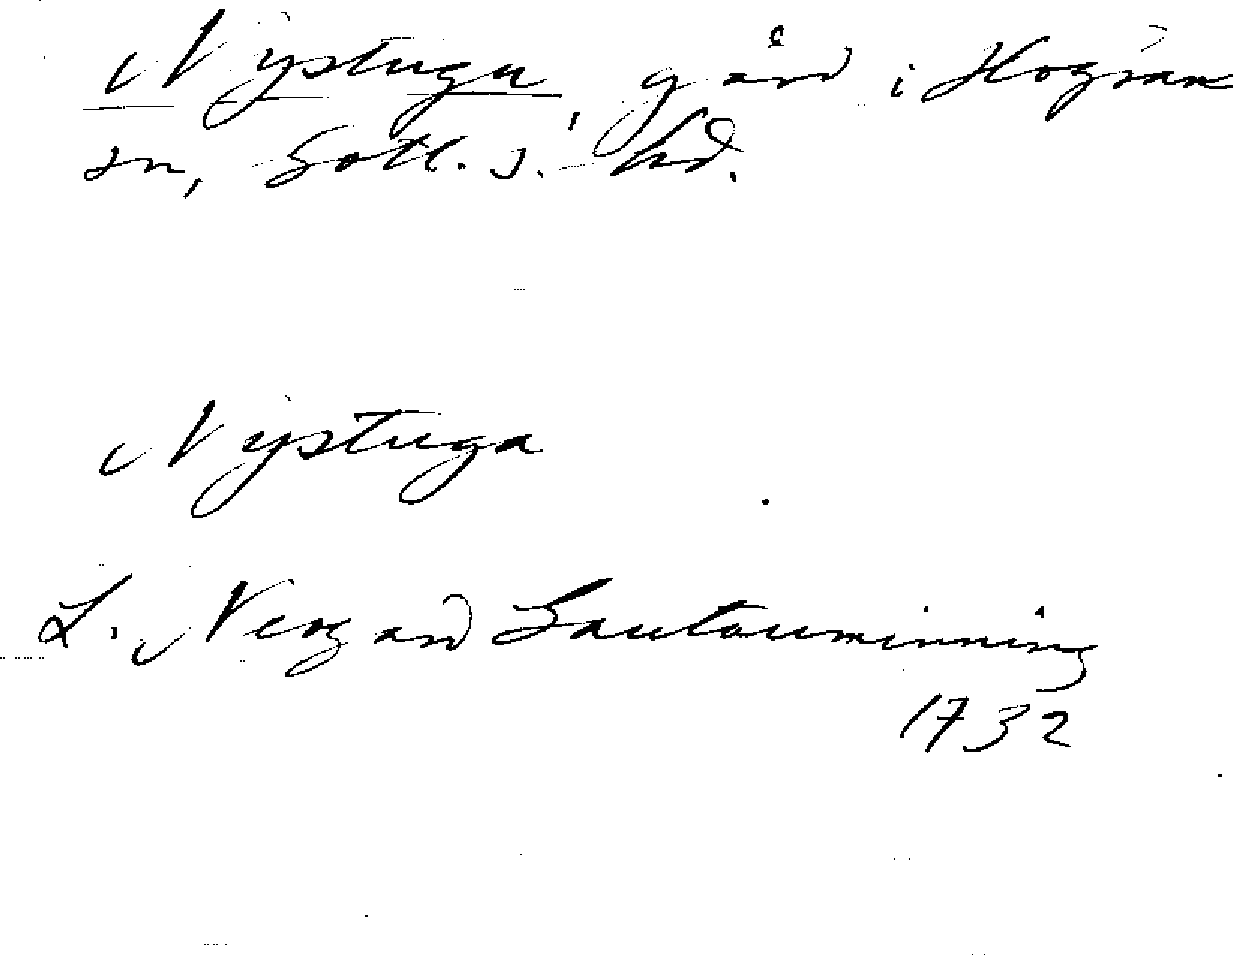 Nystugu, gård i Hogrän
sn, Gotl. s. hd.
Nystuga
L. Neogard Gautauminning
1732